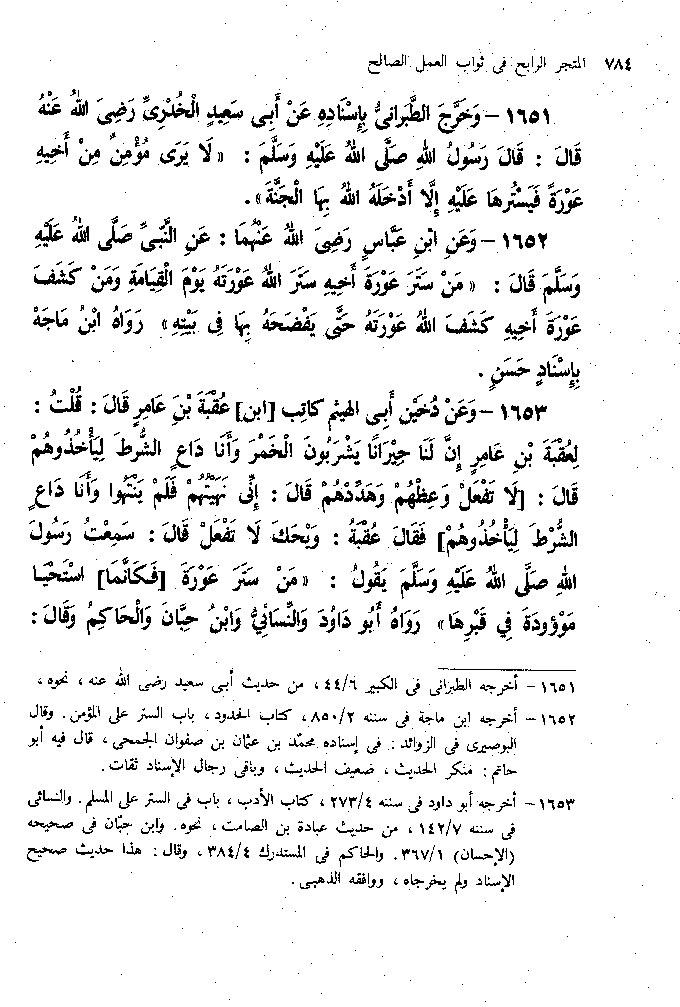 ٧٨٤ المتجر الرابح فى ثواب العمل الصالح
١٦٥١ - وَخَرَّجَ الطَّبَرانىُّ بِإِسْنَادِهِ عَنْ أَبِى سَعِيدٍ الْخُدْرِىِّ رَضِىَ اللهُ عَنْهُ
قَالَ : قَالَ رَسُولُ اللهِ صَلَّى اللهُ عَلَيْهِ وَسَلَّمَ : « لَا يَرَى مُؤْمِنٌ مِنْ أَخِيهِ
عَوْرَةً فَيَسْتُرها عَلَيْهِ إِلَّا أَدْخَلَهُ اللهُ بِهَا الْجَنَّةَ» .
١٦٥٢ - وَعَنِ ابْنِ عَبَّاسٍ رَضِىَ اللهُ عَنْهُمَا : عَنِ النَّبِىِّ صَلَّى اللهُ عَلَيْهِ
وَسَلَّمَ قَالَ : « مَنْ سَتَرَ عَوْرَةَ أَخِيهِ سَتَرَ اللهُ عَوْرَتَهُ يَوْمَ الْقِيَامَةِ وَمَنْ كَشَفَ
عَوْرَةَ أَخِيهِ كَشَفَ اللهُ عَوْرَتَهُ حَتَّى يَفْضَحَهُ بِهَا فِى بَيْتِهِ» رَوَاهُ ابْنُ مَاجَهْ
بِإِسْنَادٍ حَسَنٍ .
١٦٥٣ - وَعَنْ دُخَيْنٍ أَبِى الهيثم كَاتِب [ابن] عُقْبَةَ بْنِ عَامِرٍ قَالَ : قُلْتُ :
لِعُقْبَةَ بْنِ عَامِرٍ إِنَّ لَنَا جِيرَانًا يَشْرَبُونَ الْخَمْرَ وَأَنَا دَاعٍ الشُّرطَ لِيَأْخُذُوهُمْ
قَالَ : [لَا تَفْعَلْ وَعِظْهُمْ وَهَدِّدْهُمْ قَالَ : إِنِّى نَهَيْتُهُمْ فَلَمْ يَنْتَهُوا وَأَنَا دَاعٍ
الشُّرْطَ لِيَأْخُذُوهُمْ] فَقَالَ عُقْبَةُ : وَيْحَكَ لَا تَفْعَلْ قَالَ : سَمِعْتُ رَسُولَ
اللهِ صَلَّى اللهُ عَلَيْهِ وَسَلَّمَ يَقُولُ : « مَنْ سَتَرَ عَوْرَةً [فَكَأَنَّمَا] اسْتَحْيَا
مَوْؤُودَةً فِي قَبْرِهَا» رَوَاهُ أَبُو دَاوُدَ وَالنِّسَائِيُّ وَابْنُ حِبَّانَ وَالْحَاكِمُ وَقَالَ :
١٦٥١ - أخرجه الطبرانى فى الكبير ٤٤/٦ ، من حديث أبى سعيد رضى الله عنه ، نحوه ،
١٦٥٢ - أخرجه ابن ماجة فى سننه ٨٥٠/٢ ، كتاب الحدود ، باب الستر على المؤمن . وقال
البوصيرى فى الزوائد : فى إسناده محمّد بن عثمان بن صفوان الجمحى ، قال فيه أبو
حاتم : منكر الحديث ، ضعيف الحديث ، وباقى رجال الإسناد ثقات .
١٦٥٣ - أخرجه أبو داود فى سننه ٢٧٣/٤ ، كتاب الأدب ، باب فى الستر على المسلم . والنسائى
فى سننه ١٤٢/٧ ، من حديث عبادة بن الصامت ، نحوه . وابن حبّان فى صحيحه
(الإحسان) ٣٦٧/١ . والحاكم فى المستدرك ٣٨٤/٤ ، وقال : هذا حديث صحيح
الإسناد ولم يخرجاه ، ووافقه الذهبى .